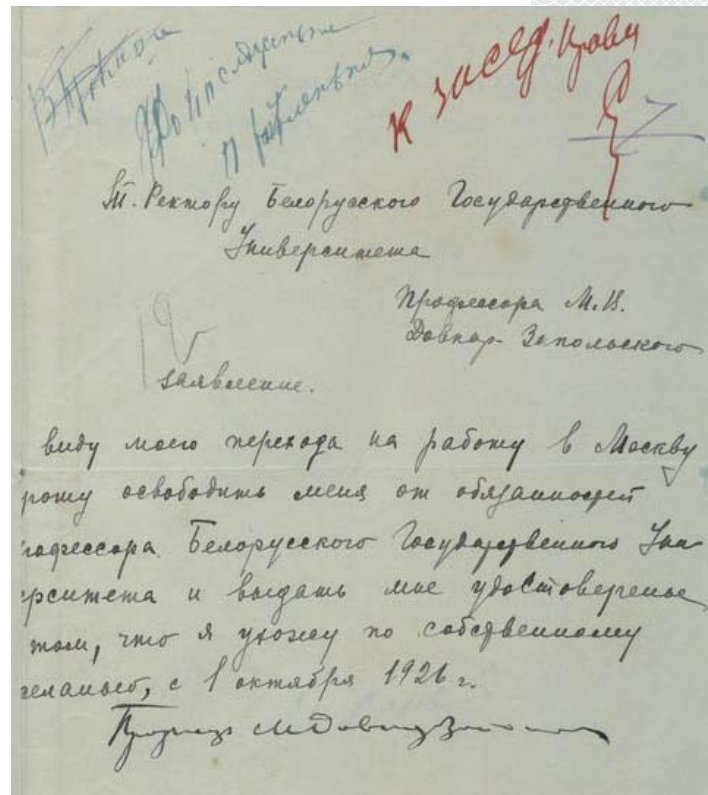 К засед. Правл
Т. Ректору Белорусского Государственного
Университета
Профессора М.В.
Довнар-Запольского
Заявление.
виду моего перехода на работу в Москву
рошу освободить меня от обязанностей
рофессора Белорусского Государственного Уни
ерситета и выдать мне удостоверение
том, что я ухожу по собственному
желанию, с 1 октября 1926 г.
Профессор М Довнар Запольский